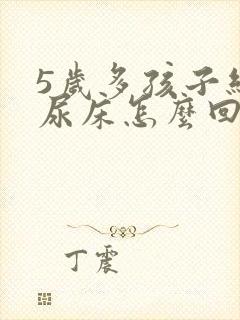 5歲多孩子經
尿床怎麼回
丁震